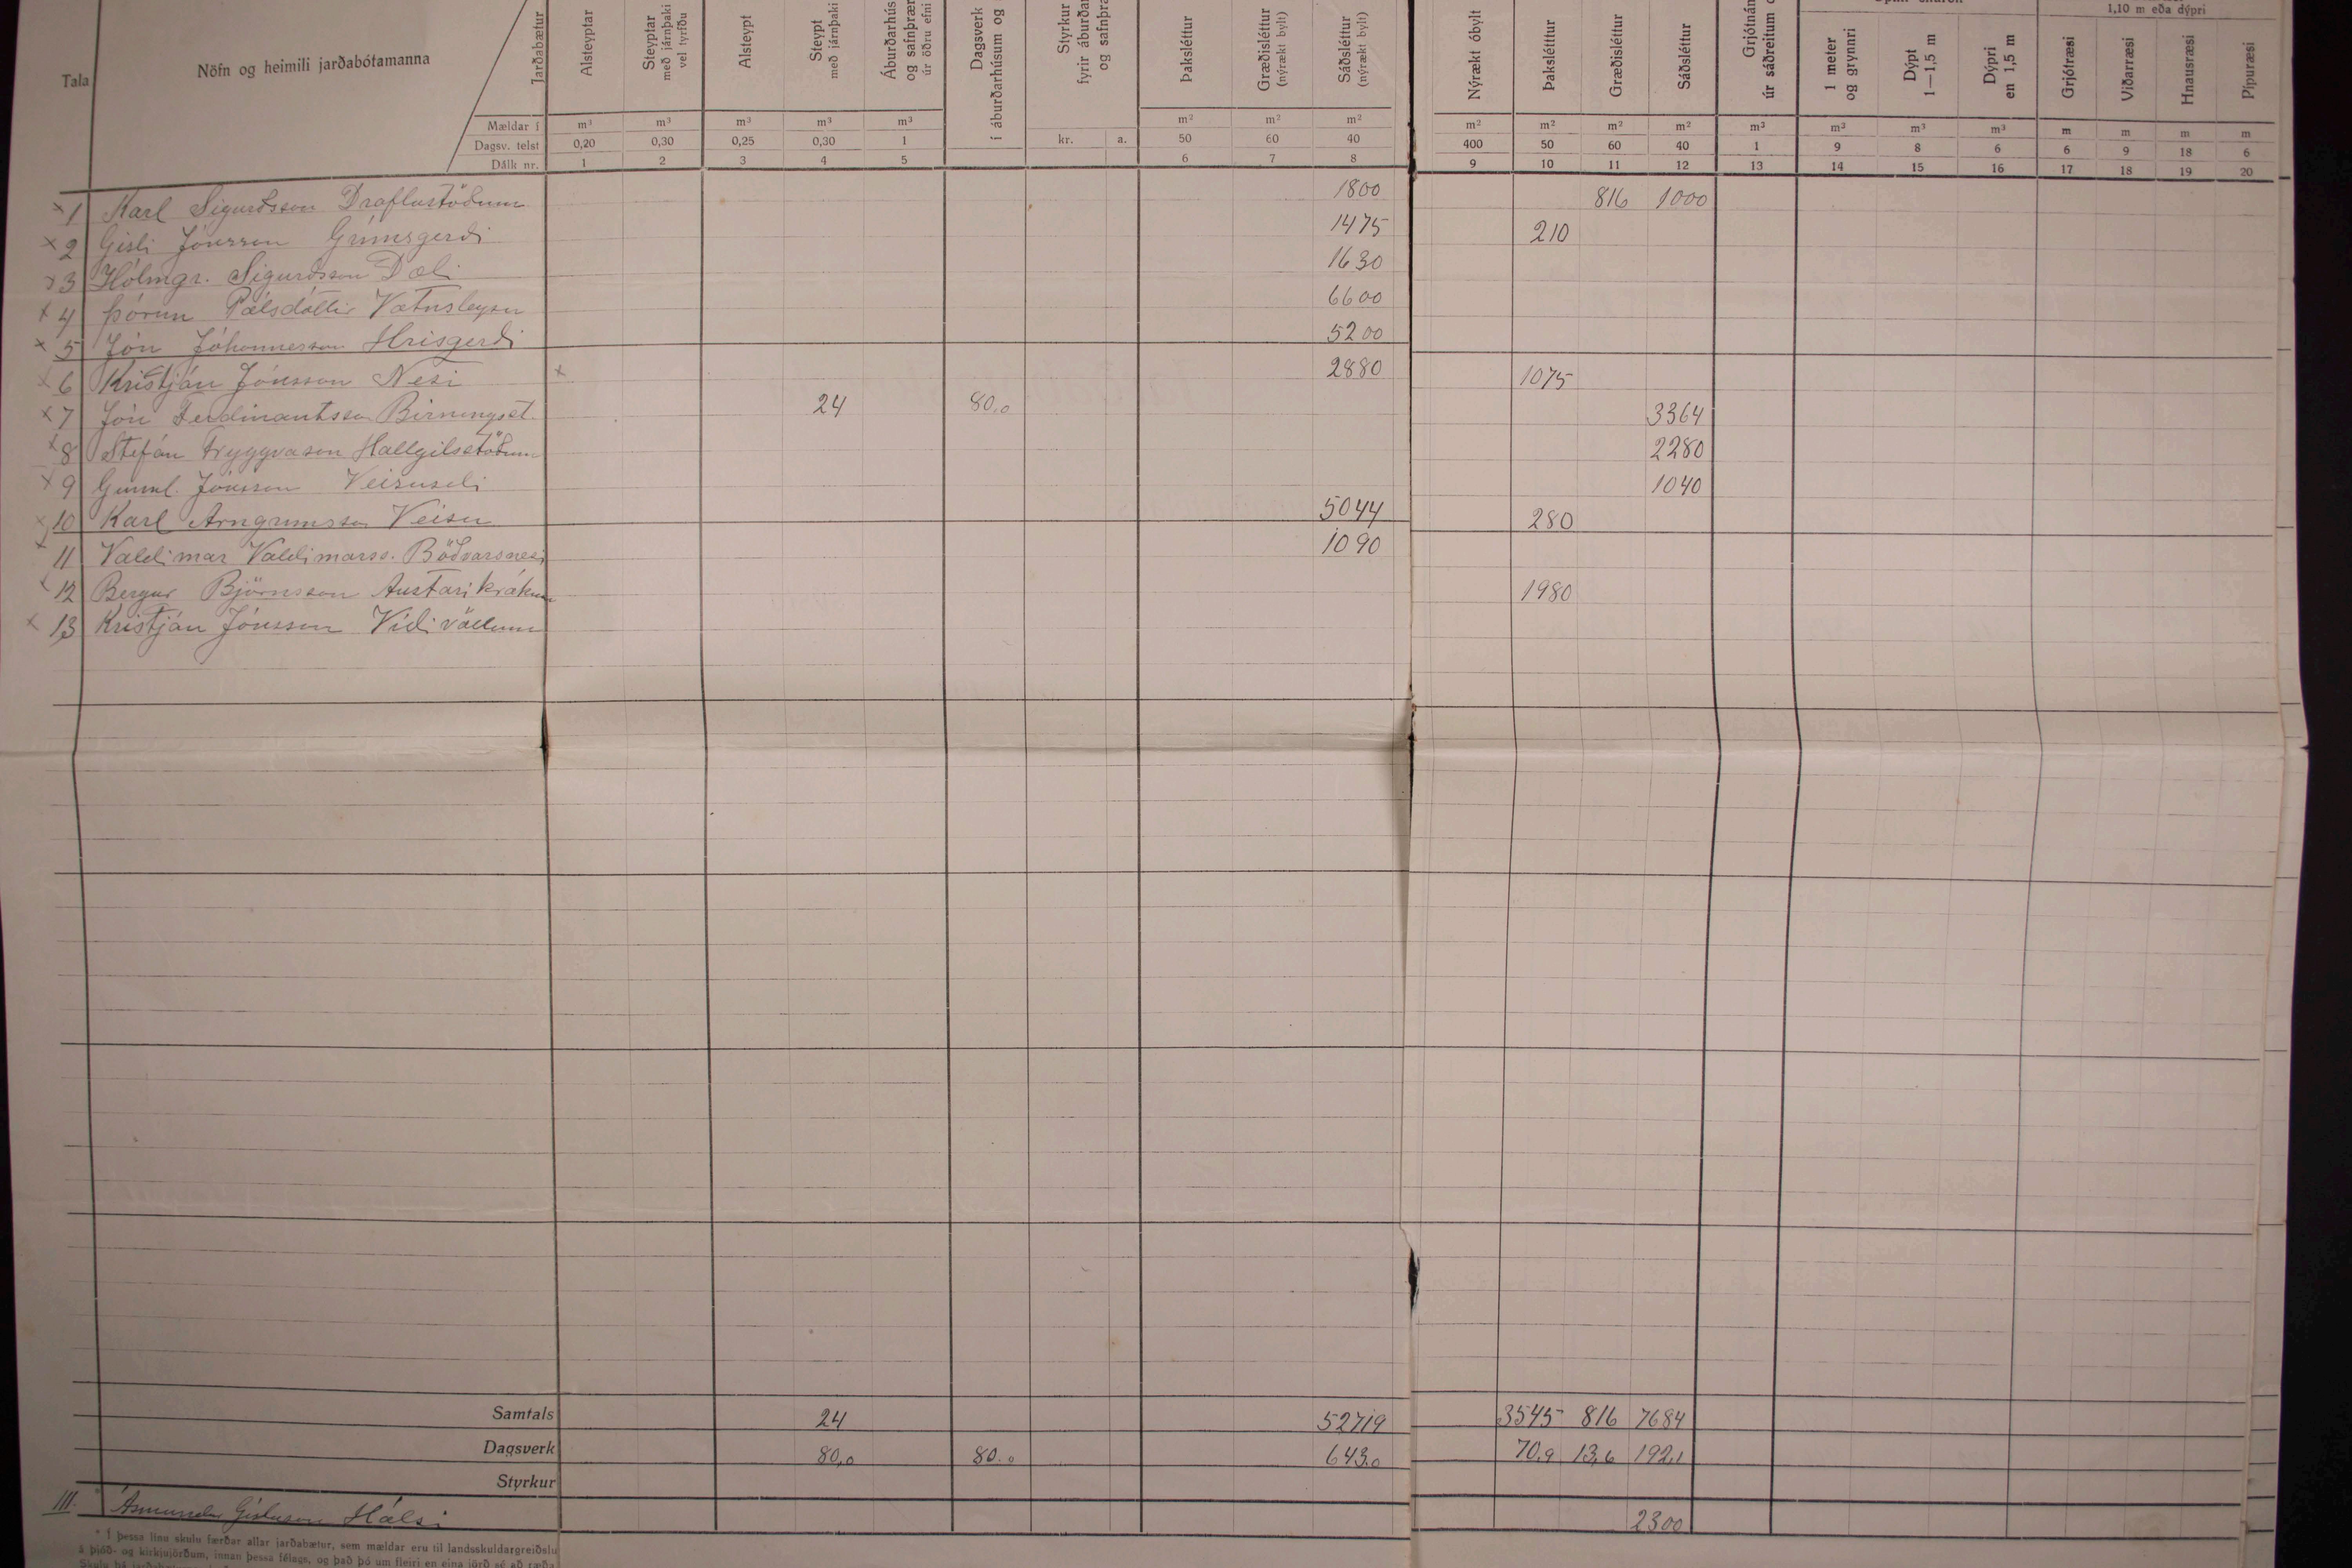 1,10 m eða dýpri
Tala
Nöfn og heimili jarðabótamanna
Jarðabætur
Alsteyptar
Steyptar með járnþaki vel tyrfðu
Alsteypt
Steypt með járnþaki
Áburðarhús og safnþrær úr öðru efni
Dagsverk í áburðarhúsum og
Styrkur fyrir áburðar og safnþræ
Þaksléttur
Græðisléttur (nýrækt bylt)
Sáðsléttur (nýrækt bylt)
Nýrækt óbylt
Þakslétttur
Græðisléttur
Sáðsléttur
Grjótnám úr sáðreitum
1 meter og grynnri
Dýpt 1—1,5 m
Dýpri en 1,5 m
Grjótræsi
Viðarræsi
Hnausræsi
Pípuræsi
Mældar í m³ m³ m³ m³ m³ m² m² m² m² m² m² m² m³ m³ m³ m³ m m m m
Dagsv. telst 0,20 0,30 0,25 0,30 1 kr. a. 50 60 40 400 50 60 40 1 9 8 6 6 9 18 6
Dálk nr. 1 2 3 4 5 6 7 8 9 10 11 12 13 14 15 16 17 18 19 20
x 1 Karl Sigurðsson Draflastöðum 1800 816 1000
x 2 Gísli Jónsson Grímsgerði 1475 210
x 3 Hólmgr. Sigurðsson Dæli 1630
x 4 Þórun Pálsdóttir Vatnsleysu 6600
x 5 Jón Jóhannesson Hrisgerði 5200
x 6 Kristján Jónsson Nesi x 2880 1075
x 7 Jón Ferdinantsson Birningsst. 24 80,0 3364
x 8 Stefán Tryggvason Hallgilsstöðum 2280
x 9 Gunnl. Jónsson Veisuseli 1040
x 10 Karl Arngrimsson Veisu 5044 280
x 11 Valdimar Valdimarss. Böðvarsnesi 1090
x 12 Bergur Björnsson Austari krókum 1980
x 13 Kristján Jónsson Víðivöllum
Samtals 24 52719 3545 816 7684
Dagsverk 80,0 80,0 643,0 70,9 13,6 192,1
Styrkur
III. Ásmundur Gíslason Hálsi 2300
* Í þessa línu skulu færðar allar jarðabætur, sem mældar eru til landsskuldargreiðslu
á þjóð- og kirkjujörðum, innan þessa félags, og það þó um fleiri en eina jörð sé að ræða